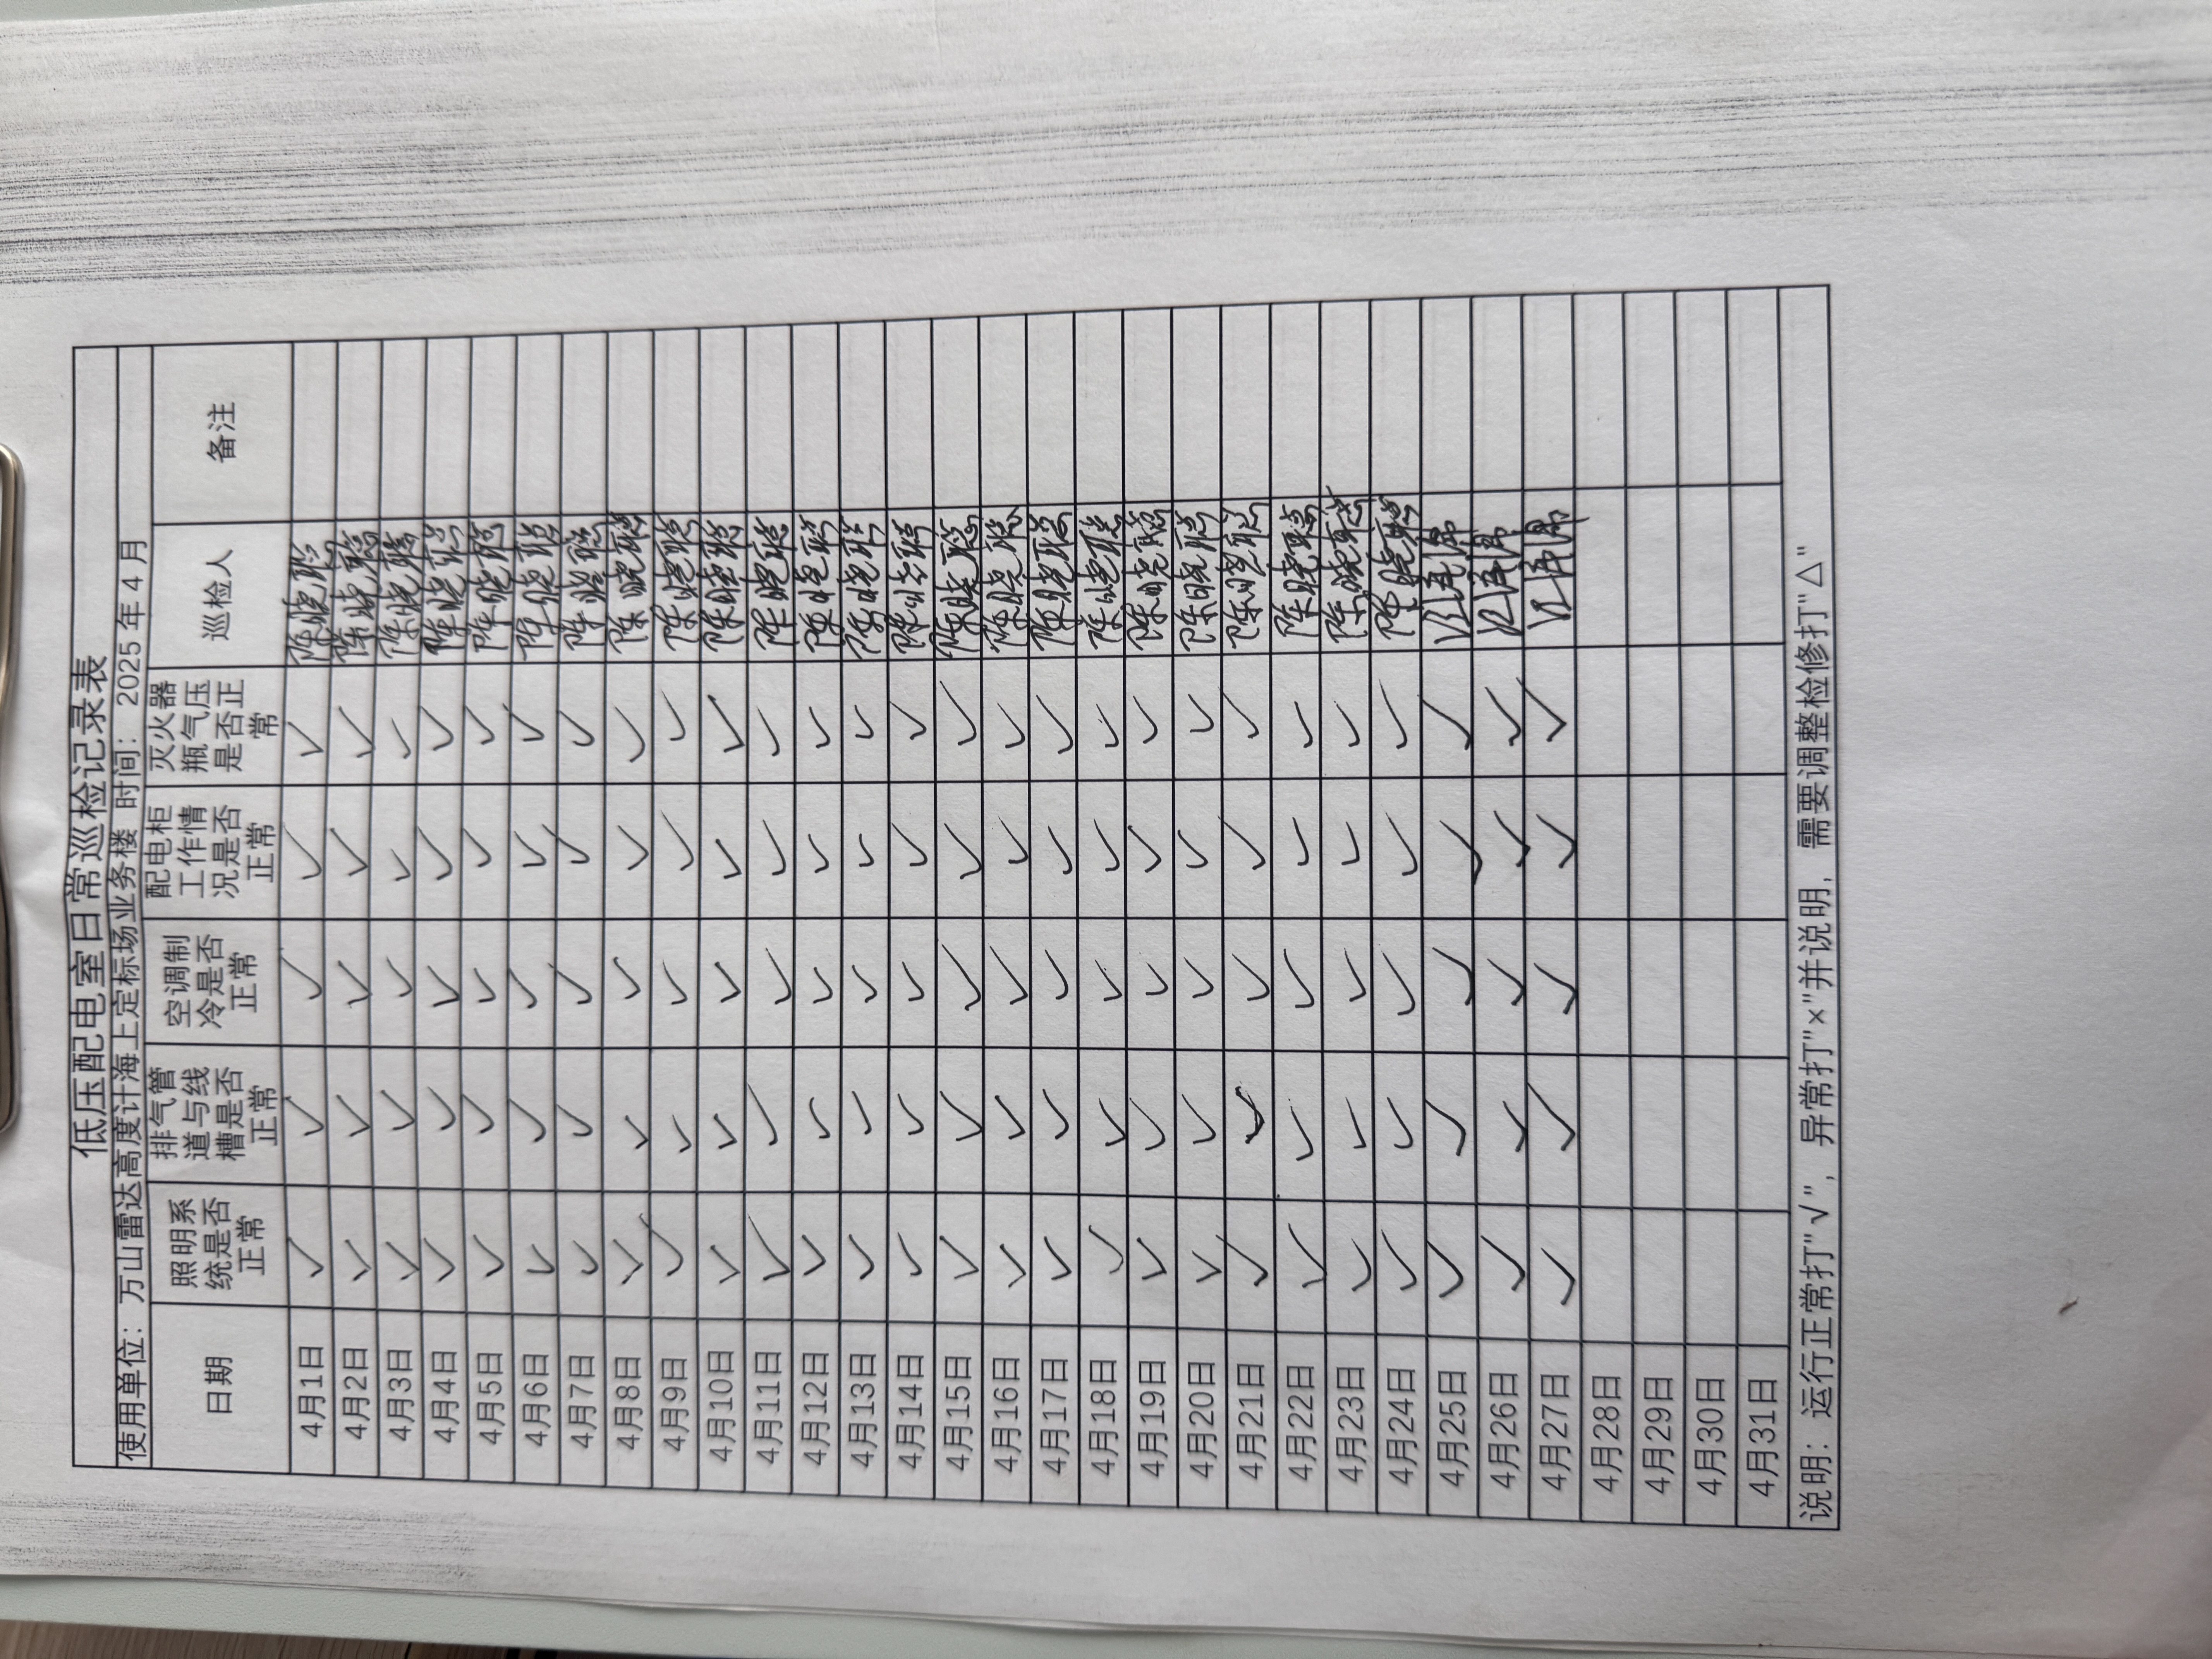 低压配电室日常巡检记录表
使用单位：万山雷达高度计海上定标场业务楼 时间：2025年4月
日期 照明系统是否正常 排气管道与线槽是否正常 空调制冷是否正常 配电柜工作情况是否正常 灭火器瓶气压是否正常 巡检人 备注
4月1日 ✓ ✓ ✓ ✓ ✓ 陈晓聪
4月2日 ✓ ✓ ✓ ✓ ✓ 陈晓聪
4月3日 ✓ ✓ ✓ ✓ ✓ 陈晓聪
4月4日 ✓ ✓ ✓ ✓ ✓ 陈晓聪
4月5日 ✓ ✓ ✓ ✓ ✓ 陈晓聪
4月6日 ✓ ✓ ✓ ✓ ✓ 陈晓聪
4月7日 ✓ ✓ ✓ ✓ ✓ 陈晓聪
4月8日 ✓ ✓ ✓ ✓ ✓ 陈晓聪
4月9日 ✓ ✓ ✓ ✓ ✓ 陈晓聪
4月10日 ✓ ✓ ✓ ✓ ✓ 陈晓聪
4月11日 ✓ ✓ ✓ ✓ ✓ 陈晓聪
4月12日 ✓ ✓ ✓ ✓ ✓ 陈晓聪
4月13日 ✓ ✓ ✓ ✓ ✓ 陈晓聪
4月14日 ✓ ✓ ✓ ✓ ✓ 陈晓聪
4月15日 ✓ ✓ ✓ ✓ ✓ 陈晓聪
4月16日 ✓ ✓ ✓ ✓ ✓ 陈晓聪
4月17日 ✓ ✓ ✓ ✓ ✓ 陈晓聪
4月18日 ✓ ✓ ✓ ✓ ✓ 陈晓聪
4月19日 ✓ ✓ ✓ ✓ ✓ 陈晓聪
4月20日 ✓ ✓ ✓ ✓ ✓ 陈晓聪
4月21日 ✓ ✓ ✓ ✓ ✓ 陈晓聪
4月22日 ✓ ✓ ✓ ✓ ✓ 陈晓聪
4月23日 ✓ ✓ ✓ ✓ ✓ 陈晓聪
4月24日 ✓ ✓ ✓ ✓ ✓ 陈晓聪
4月25日 ✓ ✓ ✓ ✓ ✓
4月26日 ✓ ✓ ✓ ✓ ✓
4月27日 ✓ ✓ ✓ ✓ ✓
4月28日
4月29日
4月30日
4月31日
说明：运行正常打"√"，异常打"×"并说明，需要调整检修打"△"